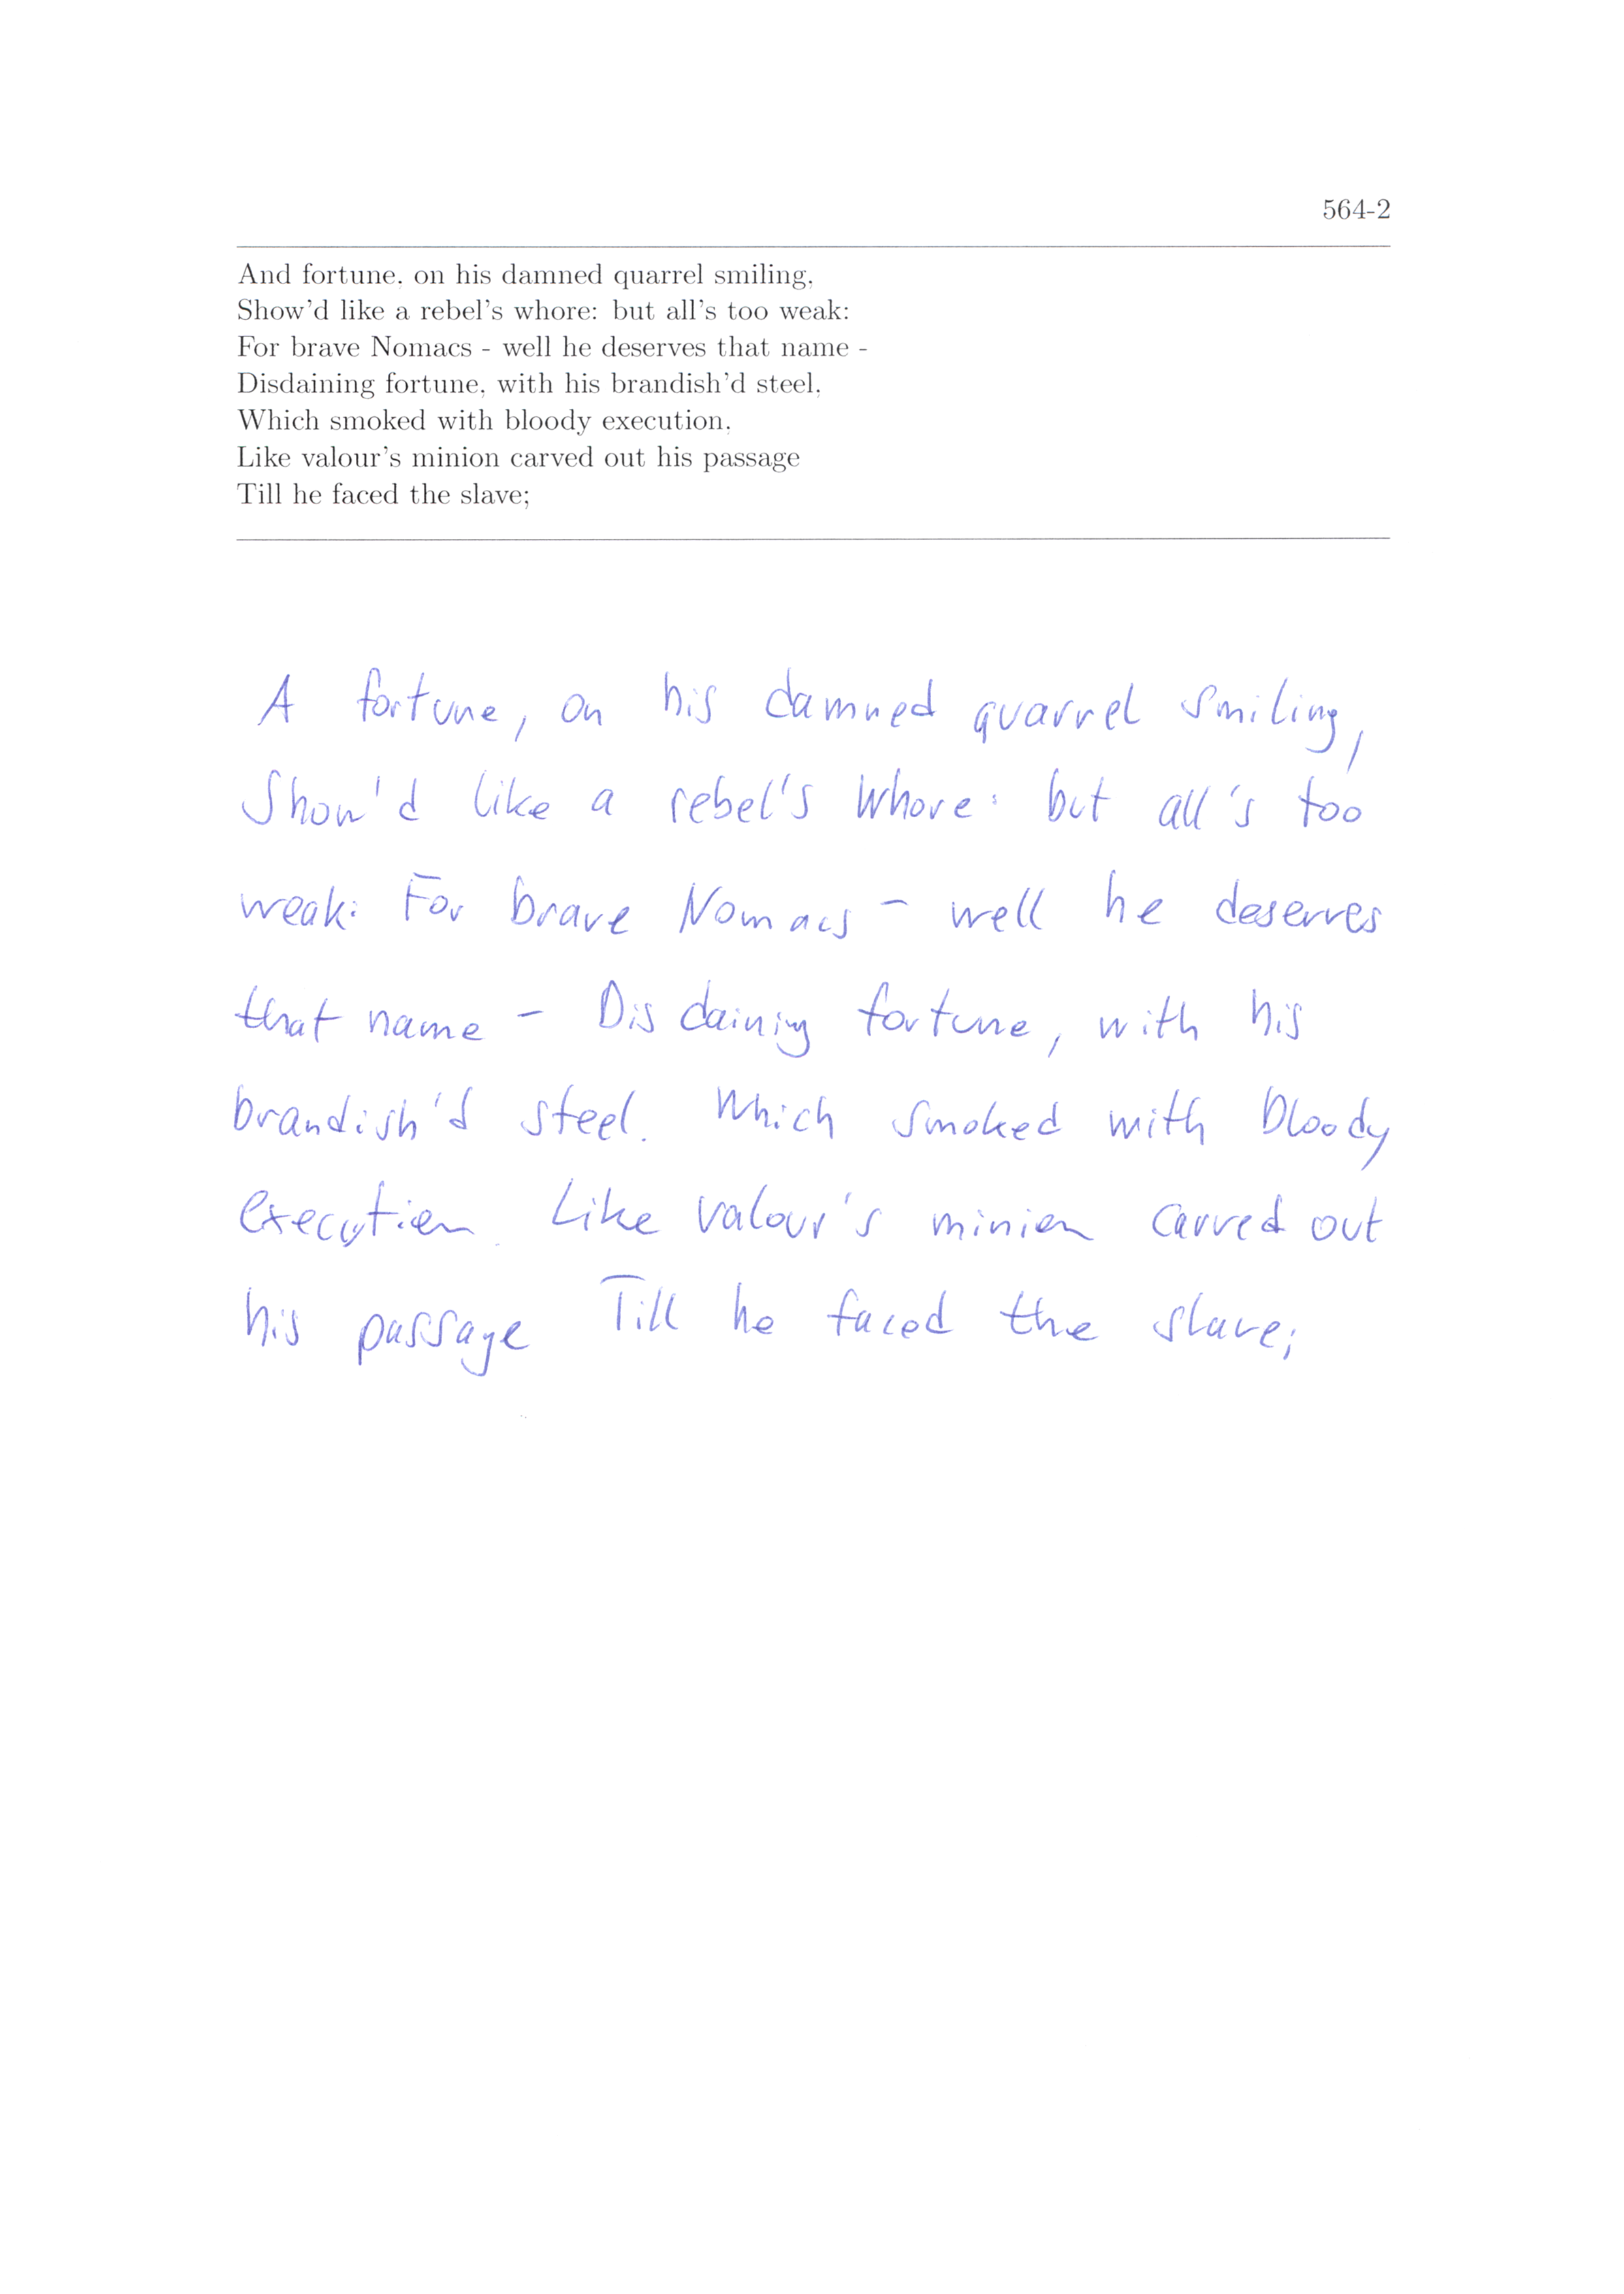 564-2
And fortune, on his damned quarrel smiling,
Show'd like a rebel's whore: but all's too weak:
For brave Nomacs - well he deserves that name -
Disdaining fortune, with his brandish'd steel,
Which smoked with bloody execution,
Like valour's minion carved out his passage
Till he faced the slave;
A fortune, on his damned quarrel smiling,
Show'd like a rebel's whore: but all's too
weak: For brave Nomacs - well he deserves
that name - Disdaining fortune, with his
brandish'd steel. Which smoked with bloody
execution. Like valour's minion carved out
his passage Till he faced the slave;